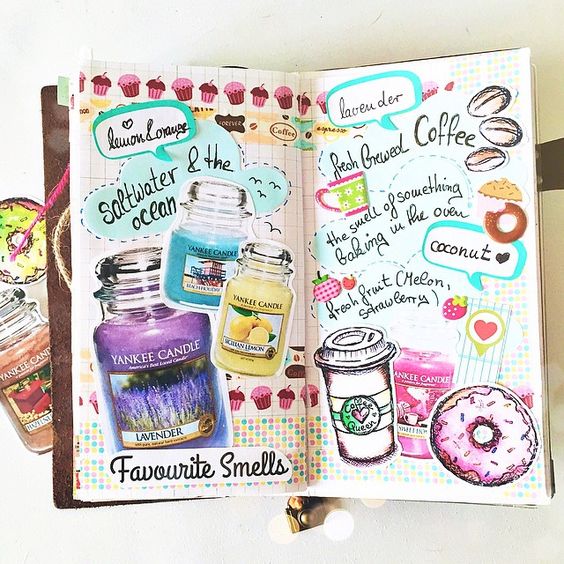 lemon & orange
FOREVER
Coffee
saltwater & the
ocean
YANKEE CANDLE
BEACH HOLIDAY
YANKEE CANDLE
SICILIAN LEMON
YANKEE CANDLE
America's Best Loved Candle
LAVENDER
Favourite Smells
lavender
espresso
fresh brewed Coffee
the smell of something
baking in the oven
coconut
fresh fruit (Melon,
strawberry)
YANKEE CANDLE
Queen